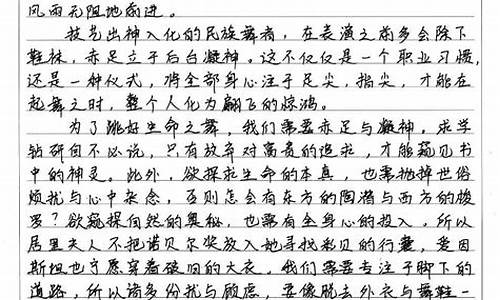 风雨无阻地前进。
技艺出神入化的民族舞者，在表演之前多会除下
鞋袜，赤足立于后台凝神。这不仅仅是个职业习惯，
还是一种仪式，将全部身心注于足尖，指尖，才能在
起舞之时，整个人化为翩飞的惊鸿。
为了跳好生命之舞，我们需要赤足与凝神。求学
钻研自不必说，只有放弃对富贵的追求，才能窥见书
中的神灵。此外，欲探求生命的本真，也需抛掉世俗
烦扰与心中杂念，否则怎会有东方的陶潜与西方的梭
罗？欲窥探自然的奥秘，也需有全身心的投入。所以
居里夫人不把诺贝尔奖放入她寻找彩贝的行囊，爱因
斯坦也宁愿穿着破旧的大衣。我们需要专注于脚下的
道路，所以请多份忧与顾虑，要像脱去外衣与舞鞋一